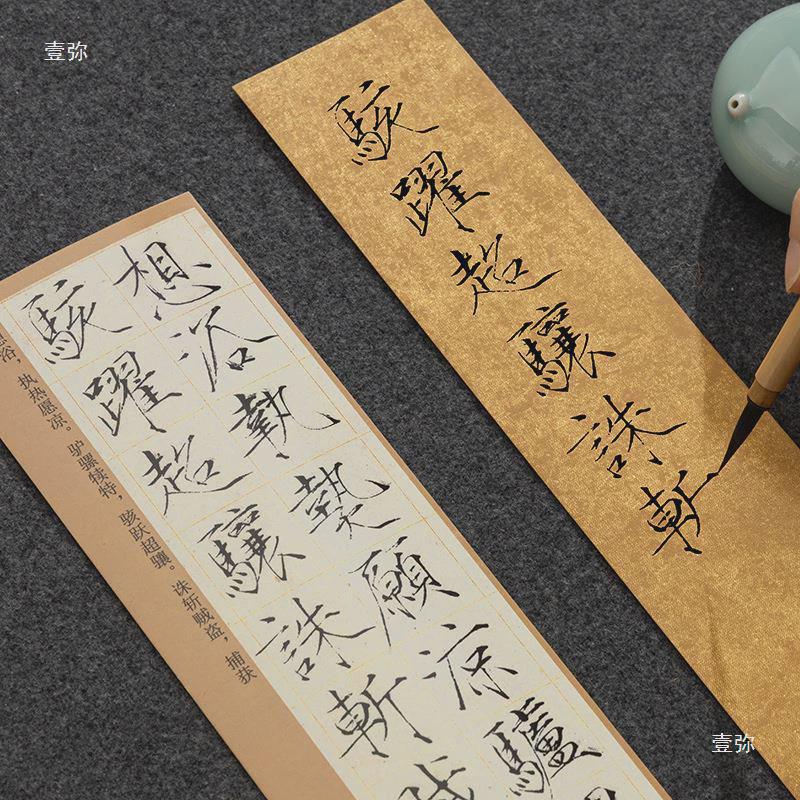 壹弥
駭躍超驤誅斬
想浴執熱願涼驢
駭躍超驤誅斬
浴，执热愿凉。驴骡犊特，骇跃超骧。诛斩贼盗，捕获
壹弥